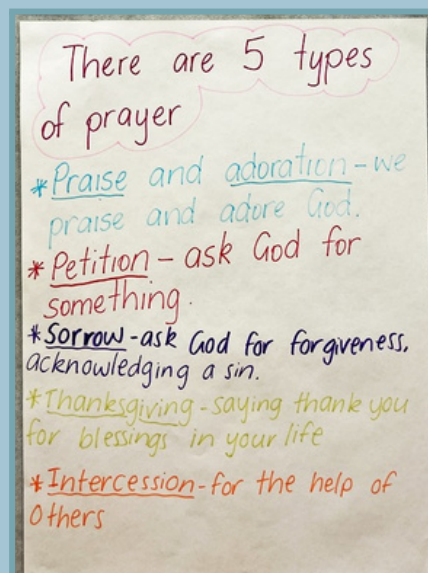 There are 5 types
of prayer
*Praise and adoration - we
praise and adore God.
*Petition - ask God for
something.
*Sorrow - ask God for forgiveness,
acknowledging a sin.
*Thanksgiving - saying thank you
for blessings in your life
*Intercession - for the help of
Others